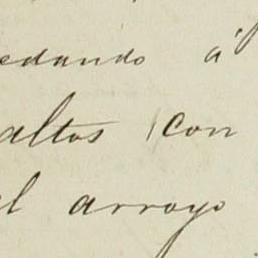 edando á
altos (con
el arroyo